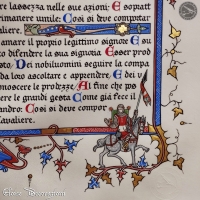 re lassezza nelle sue azioni; E sopatt
rimanere umile: Così si deve comportar
valiere.
amare il proprio legittimo signore E su
to difendere la sua signoria Esser prod
osto. Dei nobiluomini seguire la compa
da loro ascoltare e apprendere. E dei v
onoscere le prodezze Al fine che po
ere le grandi gesta Come già fece il
andro: Così si deve compor
avaliere.